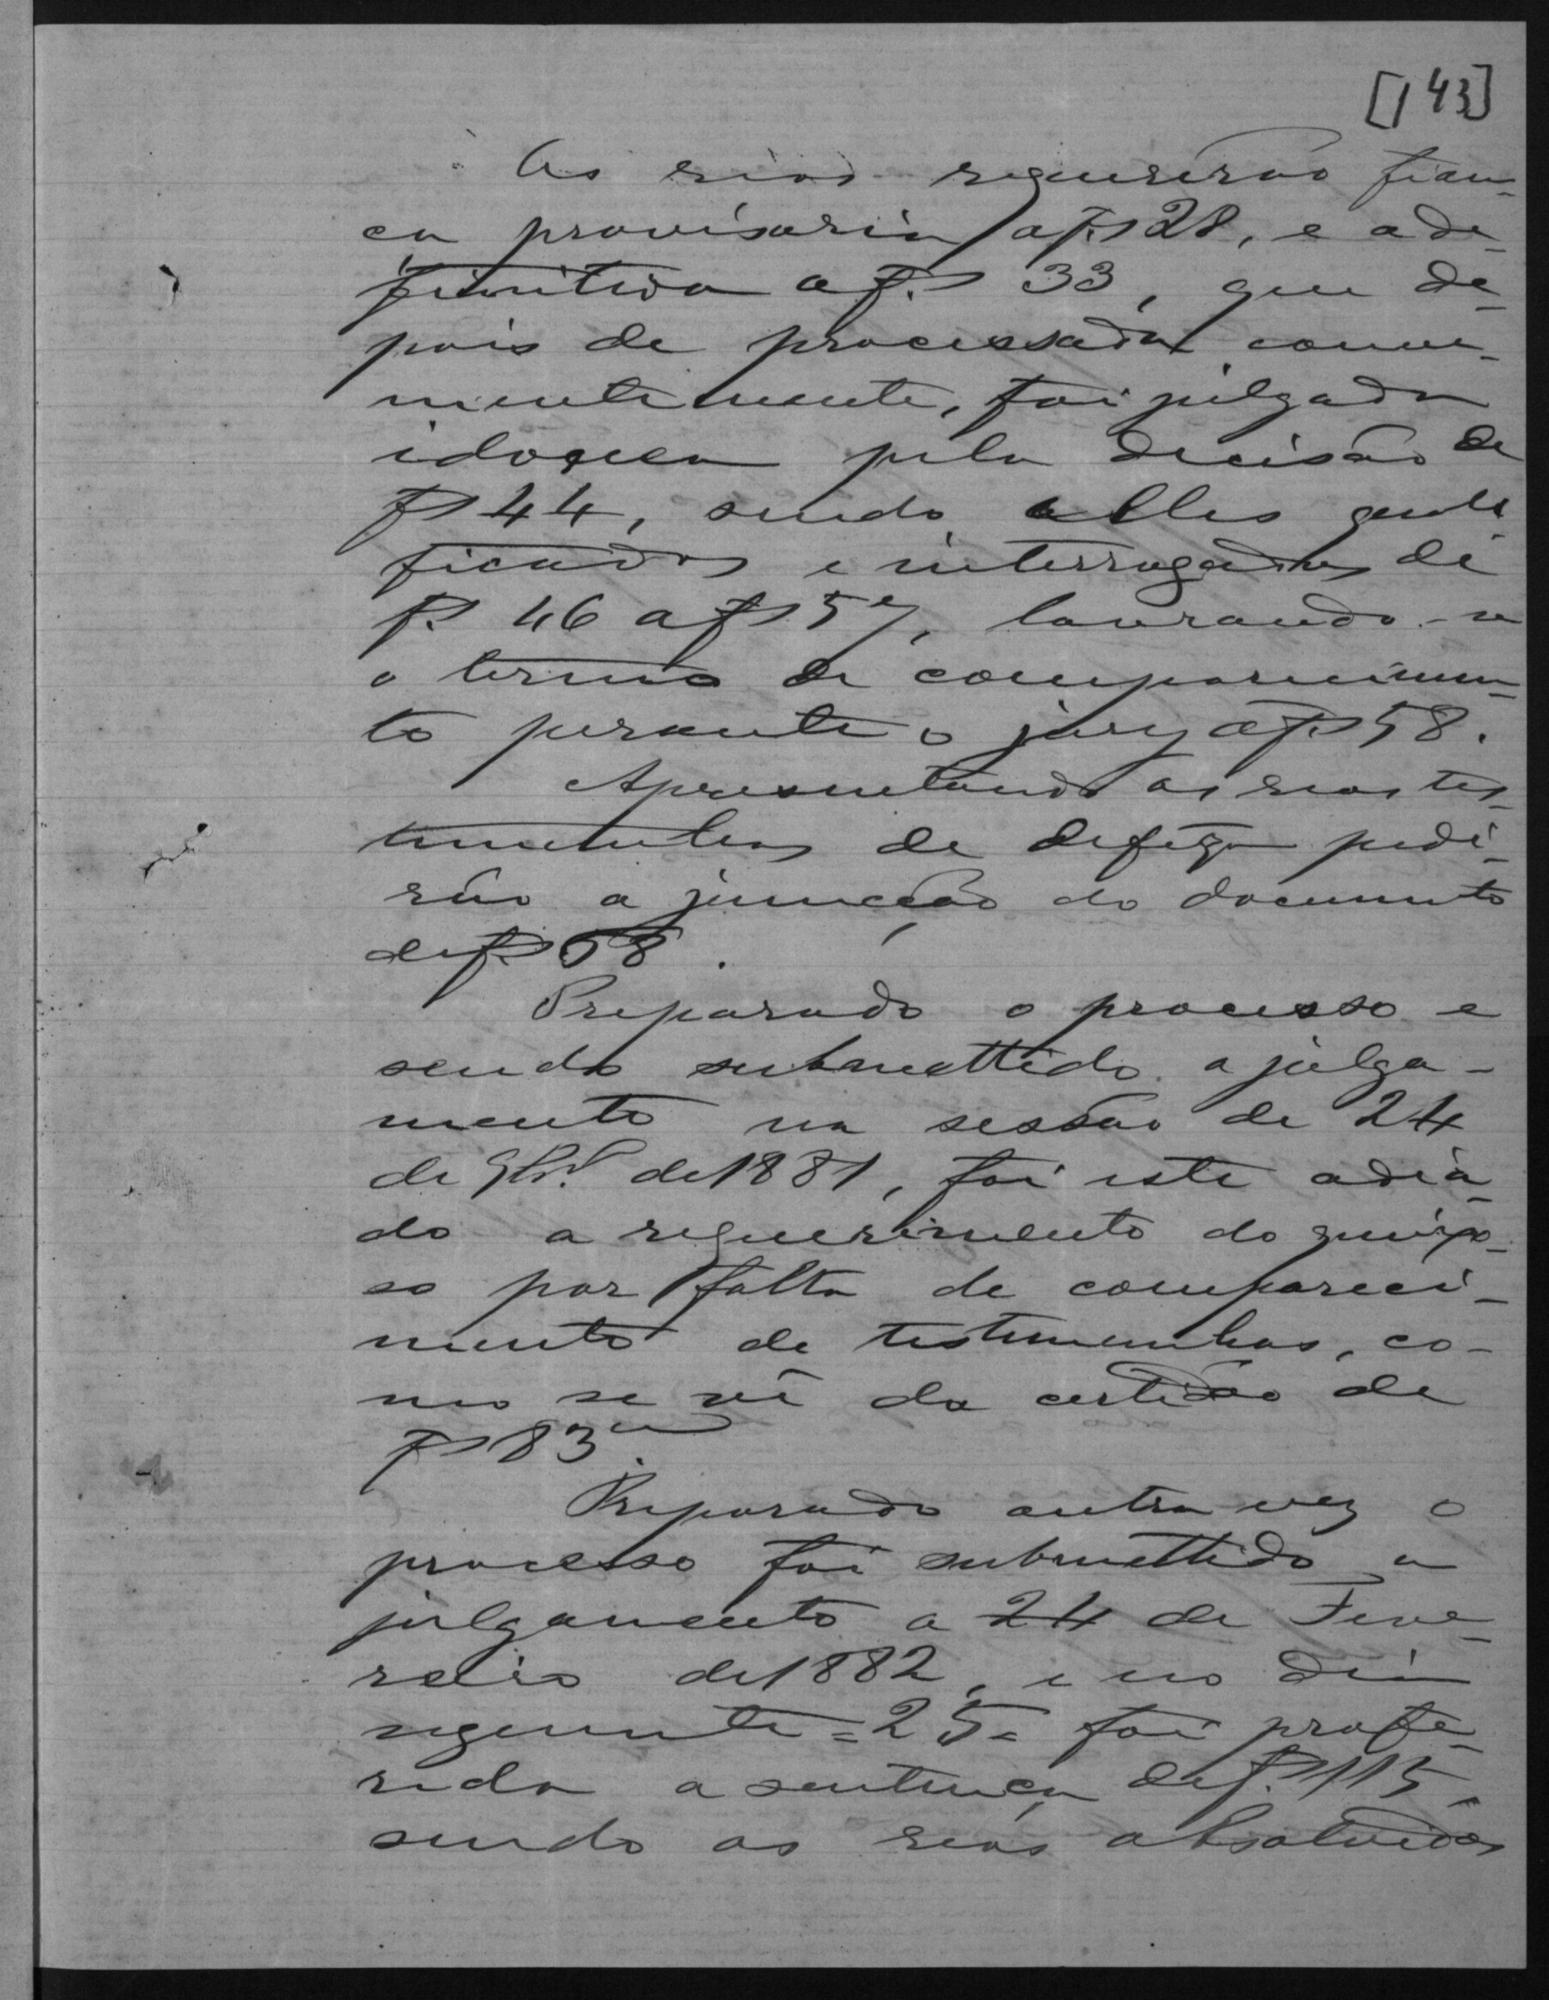 [143]
Os reos requererão fian-
ça provisoria a fs 28, e a de-
finitiva a fs 33, que de-
pois de processada conve-
nientemente, foi julgada
idonea pela decisão de
fs 44, sendo elles quali
ficados e interrogados de
fs. 46 a fs 57, lavrando-se
o termo de comparecimen-
to perante o jury a fs 58.
Apresentando os reos tes-
timunhas de defeza pedi-
rão a juncção do documento
de fs 68.
Preparado o processo e
sendo submettido a julga-
mento na sessão de 24
de 9br.º de 1881, foi este adia-
do a requerimento do queixo-
so por falta de compareci-
mento de testimunhas, co-
mo se vê da certidão de
fs 83 v.
Preparado outra vez o
processo foi submettido a
julgamento a 24 de Feve-
reiro de 1882, e no dia
seguinte = 25 = foi profe-
rida a sentença de fs. 115,
sendo os reos absolvidos